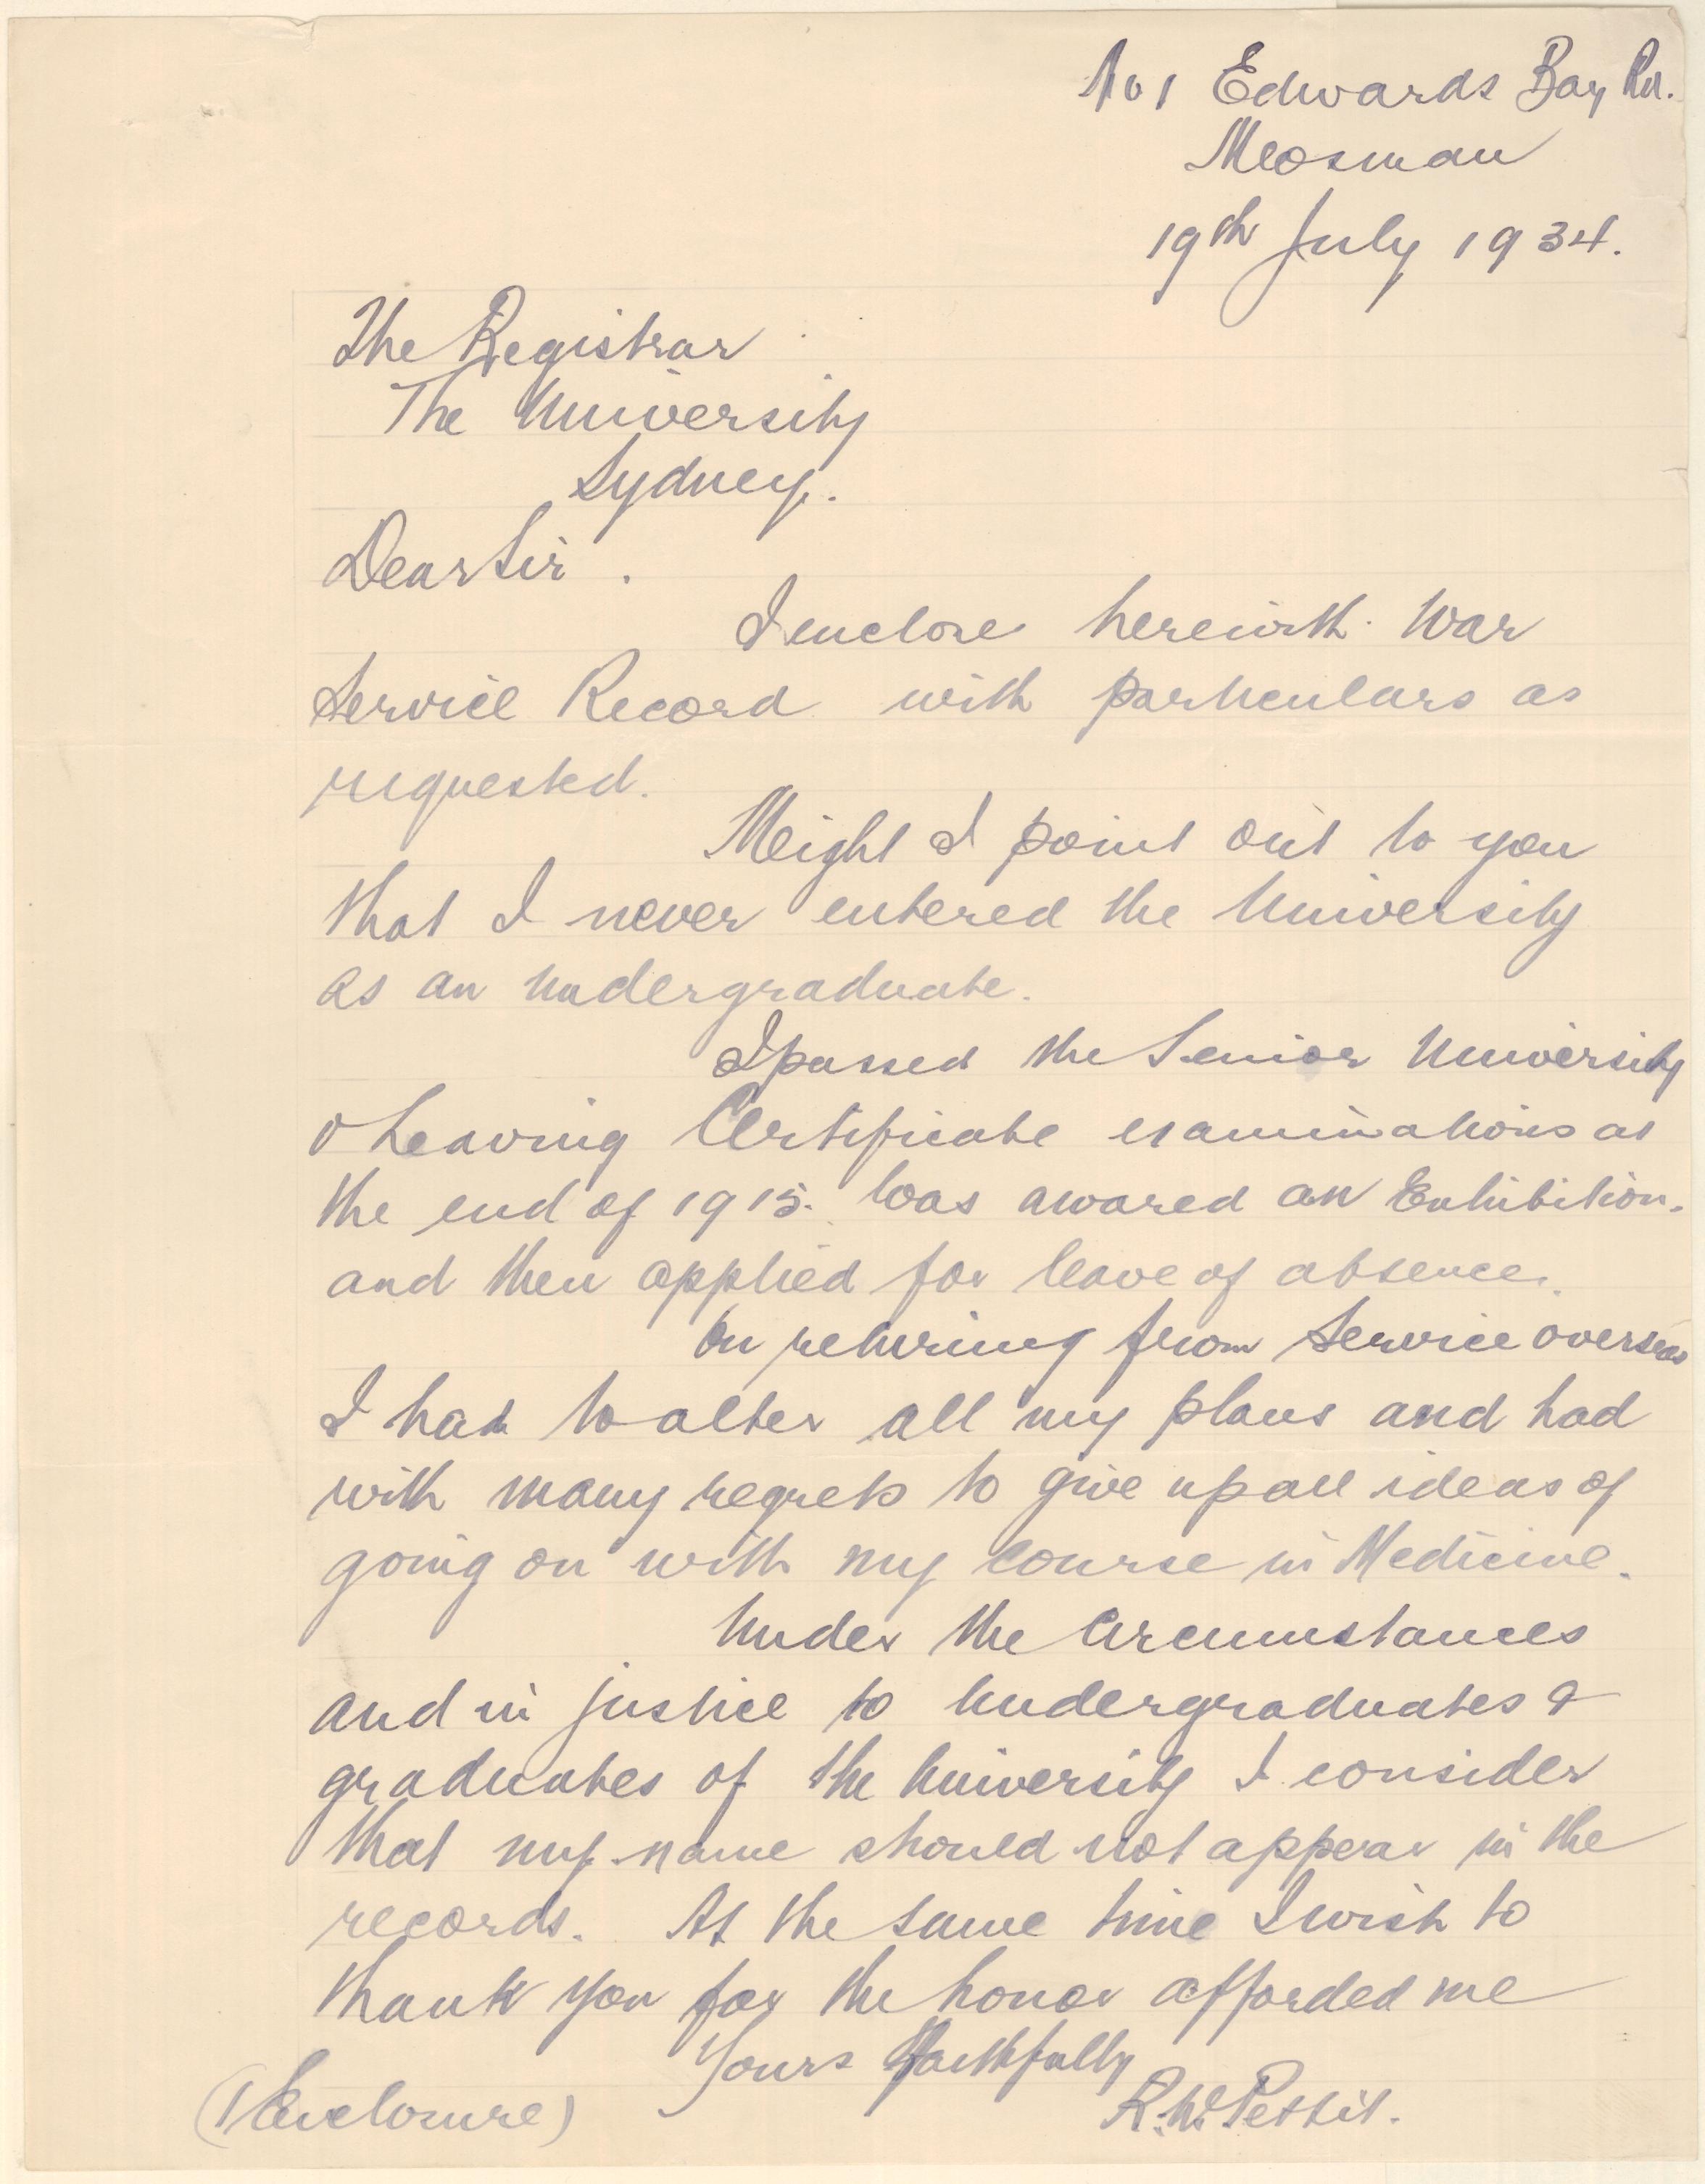 No 1 Edwards Bay Rd.
Mosman
19th July 1934.
The Registrar
The University
Sydney.
Dear Sir.
I enclose herewith War
Service Record with particulars as
requested.
Might I point out to you
that I never entered the University
as an undergraduate.
I passed the Senior University
& Leaving Certificate examinations at
the end of 1915. Was awared an Exhibition.
and then applied for leave of absence.
On returing from Service overseas
I had to alter all my plans and had
with many regrets to give up all ideas of
going on with my course in Medicine.
Under the Circumstances
and in justice to Undergraduates &
graduates of the University I consider
that my name should not appear in the
records. At the same time I wish to
thank you for the honor afforded me
Yours Faithfully
R.W. Pettit.
(1 Enclosure)